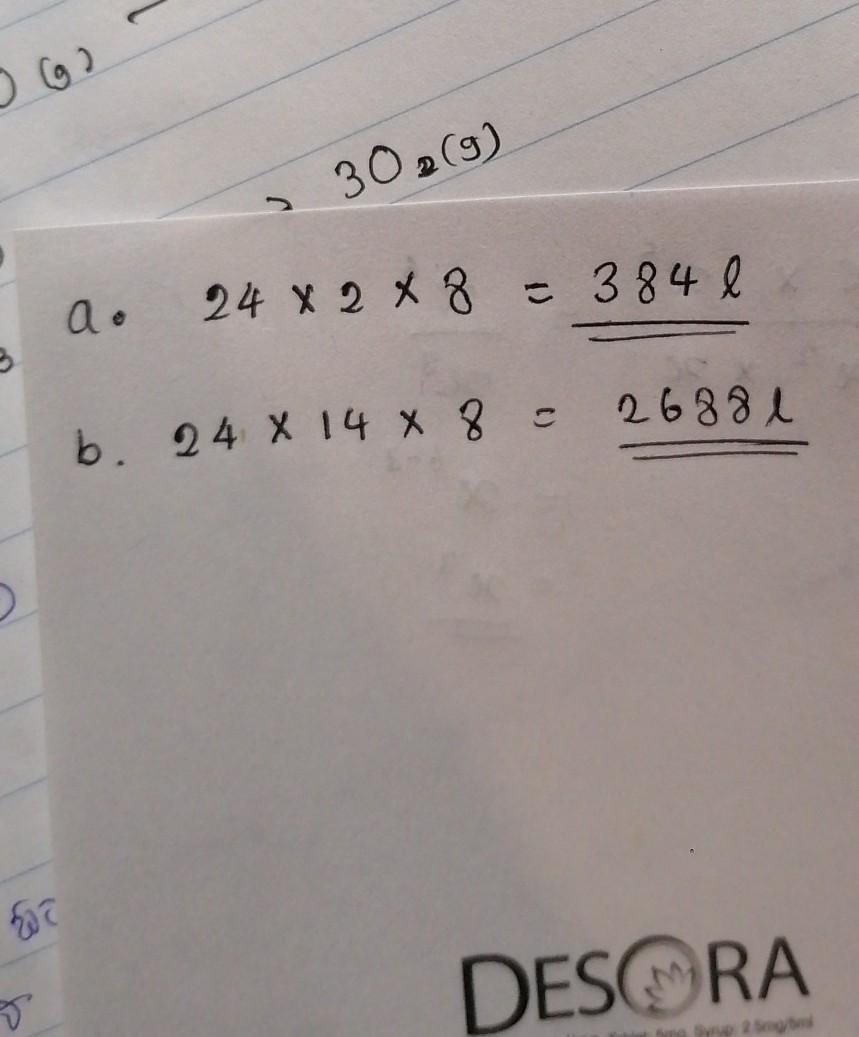 (g)
3O₂(g)
a. 24 × 2 × 8 = 384 l
b. 24 × 14 × 8 = 2688 l
DESORA
Syrup: 2.5mg/5ml